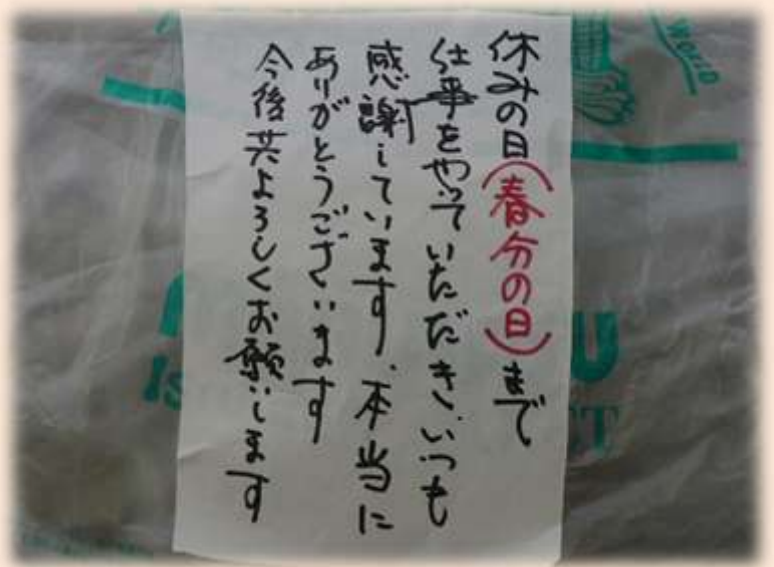 休みの日(春分の日)まで
仕事をやっていただき、いつも
感謝しています、本当に
ありがとうございます
今後共よろしくお願いします
WORLD
U
ET